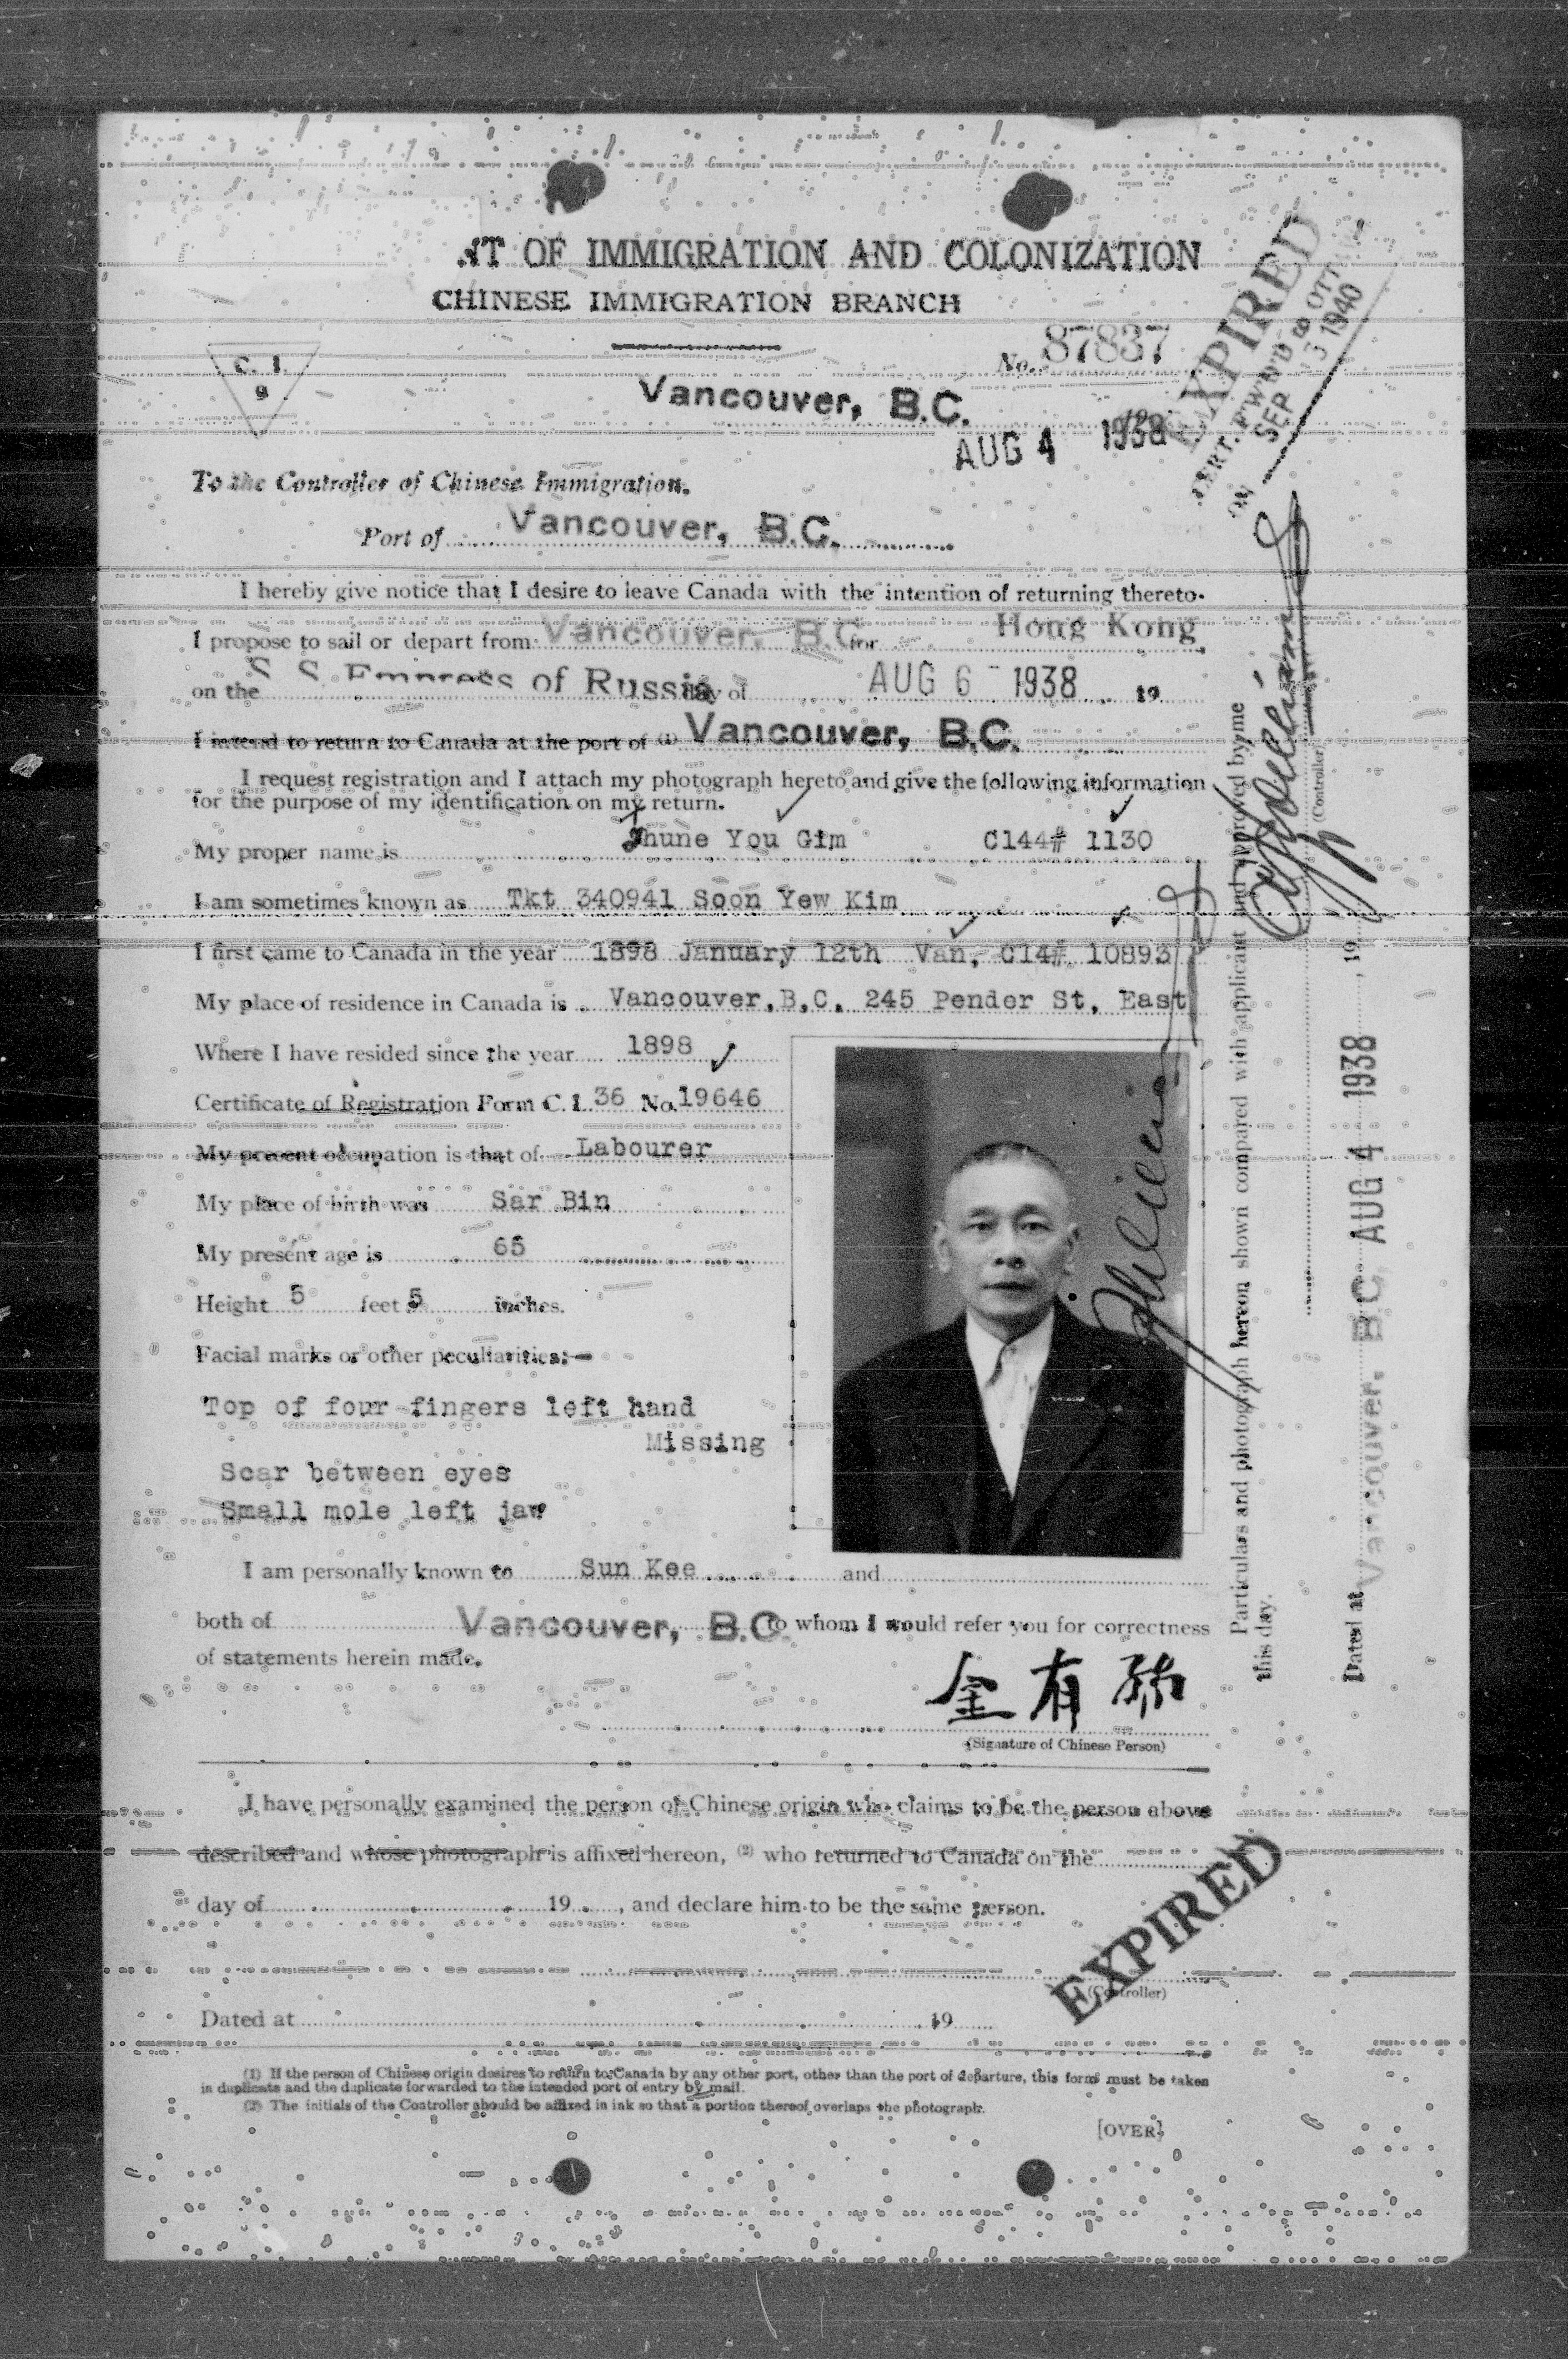 NT OF IMMIGRATION AND COLONIZATION
CHINESE IMMIGRATION BRANCH
C. I.
9
No. 87837
Vancouver, B.C.
AUG 4 1938
EXPIRED
CERT. F'W'D TO OTT
ON SEP 13 1940
To the Controller of Chinese Immigration.
Port of Vancouver, B.C.
I hereby give notice that I desire to leave Canada with the intention of returning thereto.
I propose to sail or depart from Vancouver, B.C. for Hong Kong
on the S. S. Empress of Russia day of AUG 6 1938 19
I intend to return to Canada at the port of (1) Vancouver, B.C.
I request registration and I attach my photograph hereto and give the following information
for the purpose of my identification on my return.
My proper name is hune You Gim C144# 1130
I am sometimes known as Tkt 340941 Soon Yew Kim
I first came to Canada in the year 1898 January 12th Van, C14# 10893
My place of residence in Canada is Vancouver,B,C, 245 Pender St, East
Where I have resided since the year 1898
Certificate of Registration Form C. I. 36 No. 19646
My present occupation is that of Labourer
My place of birth was Sar Bin
My present age is 65
Height 5 feet 5 inches.
Facial marks or other peculiarities:—
Top of four fingers left hand
Missing
Scar between eyes
Small mole left jaw
I am personally known to Sun Kee and
both of Vancouver, B.C. to whom I would refer you for correctness
of statements herein made.
有
(Signature of Chinese Person)
I have personally examined the person of Chinese origin who claims to be the person above
described and whose photograph is affixed hereon, (2) who returned to Canada on the
day of 19 , and declare him to be the same person.
EXPIRED
(Controller)
Dated at 19
(1) If the person of Chinese origin desires to return to Canada by any other port, other than the port of departure, this form must be taken
in duplicate and the duplicate forwarded to the intended port of entry by mail.
(2) The initials of the Controller should be affixed in ink so that a portion thereof overlaps the photograph.
[OVER]
Particulars and photograph hereon shown compared with applicant and approved by me
this day.
(Controller)
Dated at Vancouver, B.C. AUG 4 1938 , 19